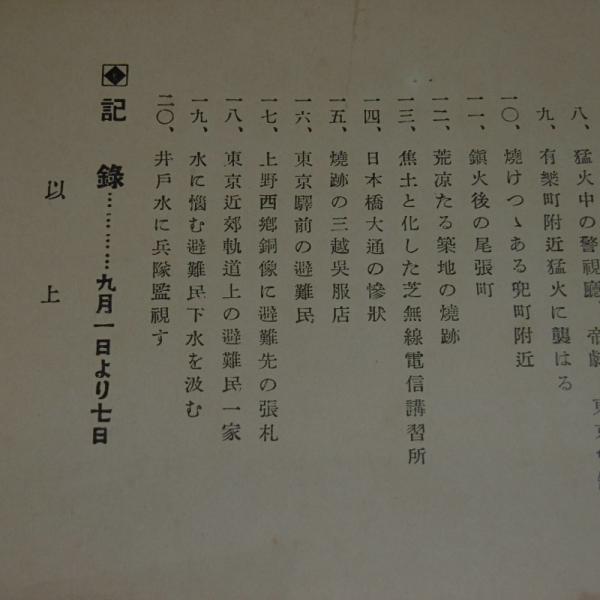 八、猛火中の警視廳 帝劇 東京
九、有樂町附近猛火に襲はる
一〇、燒けつゝある兜町附近
一一、鎭火後の尾張町
一二、荒凉たる築地の燒跡
一三、焦土と化した芝無線電信講習所
一四、日本橋大通の慘狀
一五、燒跡の三越吳服店
一六、東京驛前の避難民
一七、上野西鄕銅像に避難先の張札
一八、東京近郊軌道上の避難民一家
一九、水に惱む避難民下水を汲む
二〇、井戶水に兵隊監視す
記 錄…………九月一日より七日
以上